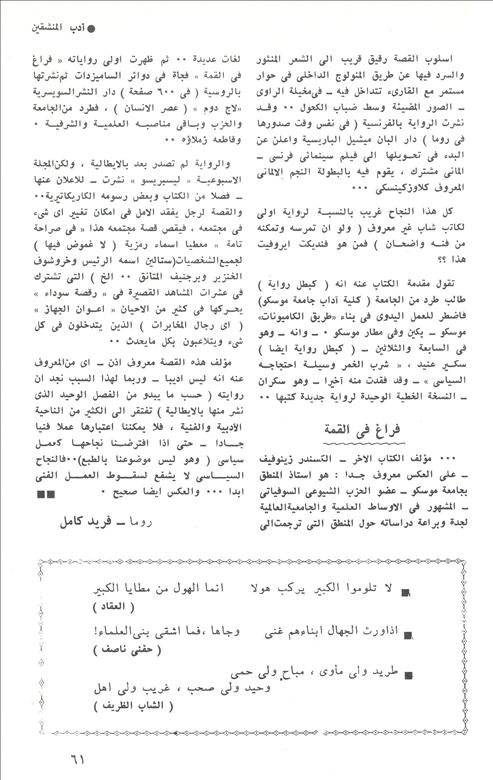 ● أدب المنشقين
اسلوب القصة رقيق قريب الى الشعر المنثور
والسرد فيها عن طريق المنولوج الداخلى فى حوار
مستمر مع القارىء تتداخل فيه ـ فىمخيلة الراوى
ـ الصور المضيئة وسط ضباب الكحول ٠٠ وقد
نشرت الرواية بالفرنسية ( فى نفس وقت صدورها
فى روما ) دار البان ميشيل الباريسية واعلن عن
البدء فى تحويلها الى فيلم سينمائى فرنسى ـ
المانى مشترك ، يقوم فيه بالبطولة النجم الالمانى
المعروف كلاوزكينسكى ٠٠٠
كل هذا النجاح غريب بالنسبة لرواية اولى
لكاتب شاب غير معروف ( ولو ان تمرسه وتمكنه
من فنه واضحان ) فمن هو فنديكت ايروفيت
هذا ؟؟
تقول مقدمة الكتاب عنه انه ( كبطل رواية )
طالب طرد من الجامعة ( كلية آداب جامعة موسكو)
فاضطر للعمل اليدوى فى بناء «طريق الكاميونات»
موسكو ـ بكين وفى مطار موسكو ٠ ـ وانه ـ وهو
فى السابعة والثلاثين ـ ( كبطل رواية ايضا )
سكير عنيد ، « شرب الخمر وسيلة احتجاجه
السياسى » ـ وقد فقدت منه أخيرا ـ وهو سكران
ـ النسخة الخطية الوحيدة لرواية جديدة كتبها ٠٠
فراغ فى القمة
٠٠٠ مؤلف الكتاب الاخر ـ الكسندر زينوفيف
ـ على العكس معروف جدا : هو استاذ المنطق
بجامعة موسكو ـ عضو الحزب الشيوعى السوفياتى
ـ المشهور فى الاوساط العلمية والجامعيةالعالمية
لجدة وبراعة دراساته حول المنطق التى ترجمتالى
لغات عديدة ٠٠ ثم ظهرت اولى رواياته « فراغ
فى القمة » فجأة فى دوائر الساميزدات ثمنشرتها
بالروسية ( فى ٦٠٠ صفحة ) دار النشرالسويسرية
«لاج دوم » ( عصر الانسان ) ، فطرد منالجامعة
والحزب وباقى مناصبه العلمية والشرفية ٠
وقاطعه زملاؤه ٠٠
والرواية لم تصدر بعد بالايطالية ، ولكنالمجلة
الاسبوعية « ليسبريسو » نشرت ـ للاعلان عنها
ـ فصلا من الكتاب وبعض رسومه الكاريكاتيرية٠٠
والقصة لرجل يفقد الامل فى امكان تغيير اى شىء
فى مجتمعه ، فيقص قصة مجتمعه هذا « فى صراحة
تامة » معطيا اسماء رمزية ( لا غموض فيها )
لجميعالشخصيات(ستالين اسمه الرئيس وخروشوف
الخنزير وبرجنيف المتانق ٠٠ الخ ) التى تشترك
فى عشرات المشاهد القصيرة فى « رقصة سوداء »
يحركها فى كثير من الاحيان « اعوان الجهاز »
( اى رجال المخابرات ) الذين يتدخلون فى كل
شىء ويتلاعبون بكل مايحدث ٠٠
مؤلف هذه القصة معروف اذن ـ اى منالمعروف
عنه انه ليس اديبا ـ وربما لهذا السبب نجد ان
روايته ( حسب ما يبدو من الفصل الوحيد الذى
نشر منها بالايطالية ) تفتقر الى الكثير من الناحية
الأدبية والفنية ، فلا يمكننا اعتبارها عملا فنيا
جادا ـ حتى اذا افترضنا نجاحها كعمل
سياسى ( وهو ليس موضوعنا بالطبع)٠٠فالنجاح
السياسى لا يشفع لسقوط العمل الفنى
ابدا ٠٠٠ والعكس ايضا صحيح ٠ ■■
روما ـ فريد كامل
■ لا تلوموا الكبير يركب هولا انما الهول من مطايا الكبير
( العقاد )
■ اذاورث الجهال ابناءهم غنى وجاها ،فما اشقى بنىالعلماء!
( حفنى ناصف )
■ طريد ولى مأوى ، مباح ولى حمى
وحيد ولى صحب ، غريب ولى اهل
( الشاب الظريف )
٦١